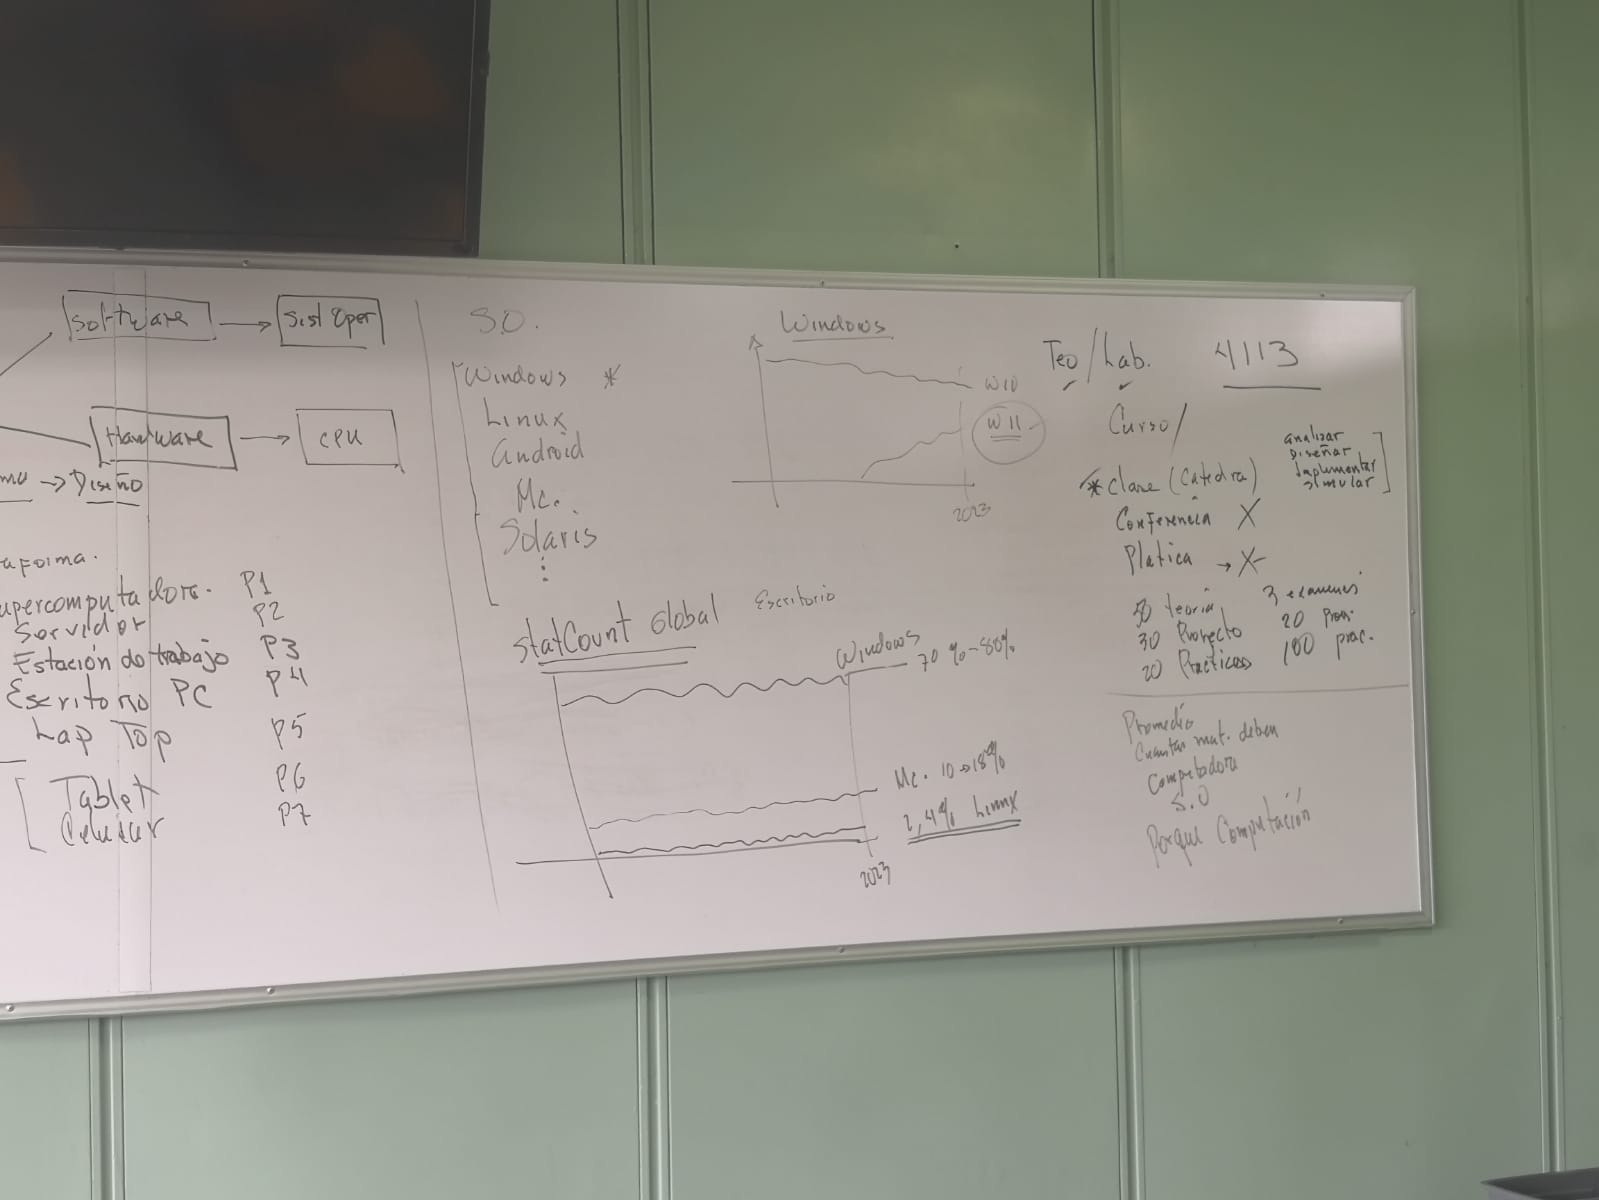 Software → Sist Oper
Hardware → CPU
→ Diseño
aforma.
upercomputadora. P1
Servidor P2
Estación de trabajo P3
Escritorio PC P4
Lap Top P5
Tablet P6
Celular P7
S.O.
Windows *
Linux
Android
Mc.
Solaris
Windows
W10
W11
2023
StatCount Global Escritorio
Windows
70 %-80%
Mc. 10→18%
2,4% Linux
2023
Teo/Lab. 4113
Curso/
* Clase (Catedra)
analizar
Diseñar
Implementar
simular
Conferencia X
Platica → X
50 Teoria, 3 examenes
30 Proyecto 20
20 Practicas 100 prac.
Promedio
Cuantas mat. deben
Computadora
S.O
Porque Computación